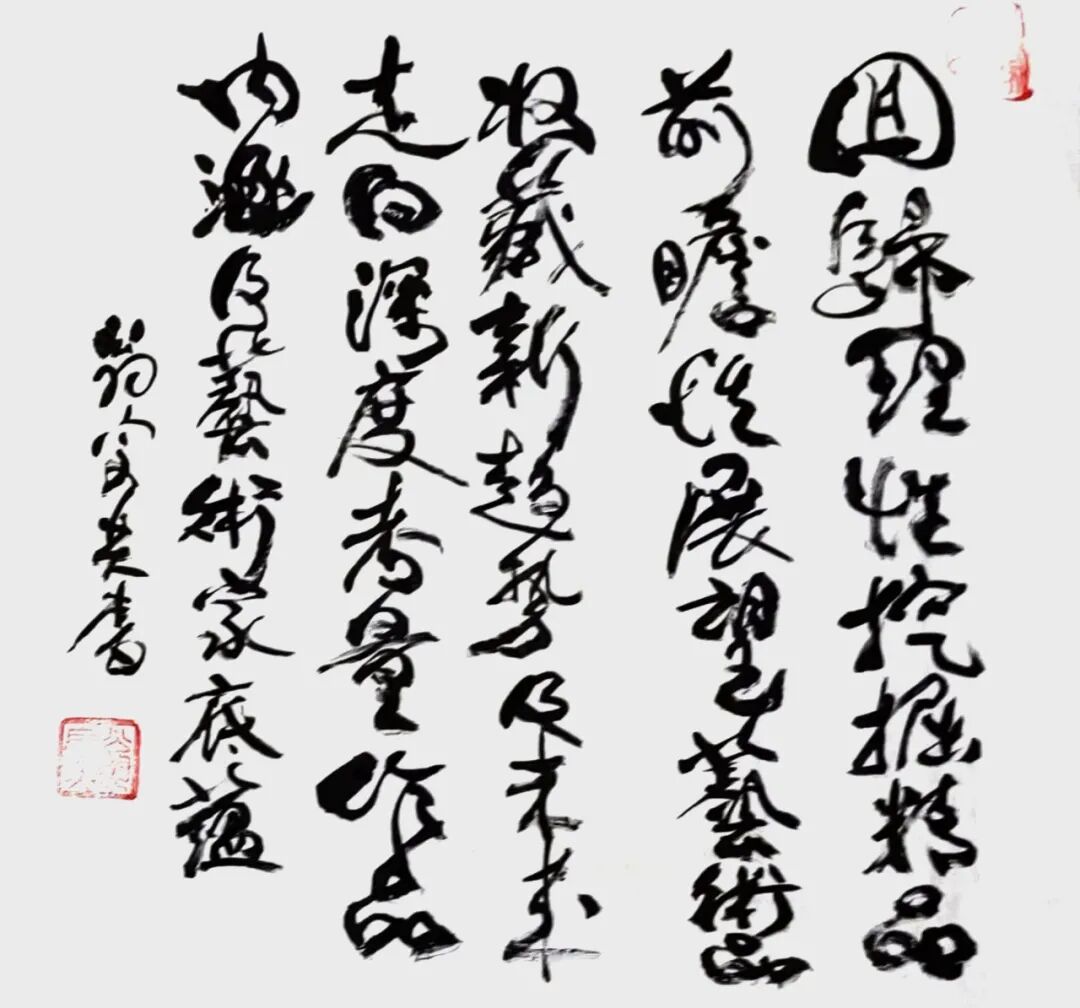 回歸理性挖掘精品
前瞻性展望藝術品
收藏新趨勢及未來
走向深度考量作品
内涵及藝術家底蘊
書